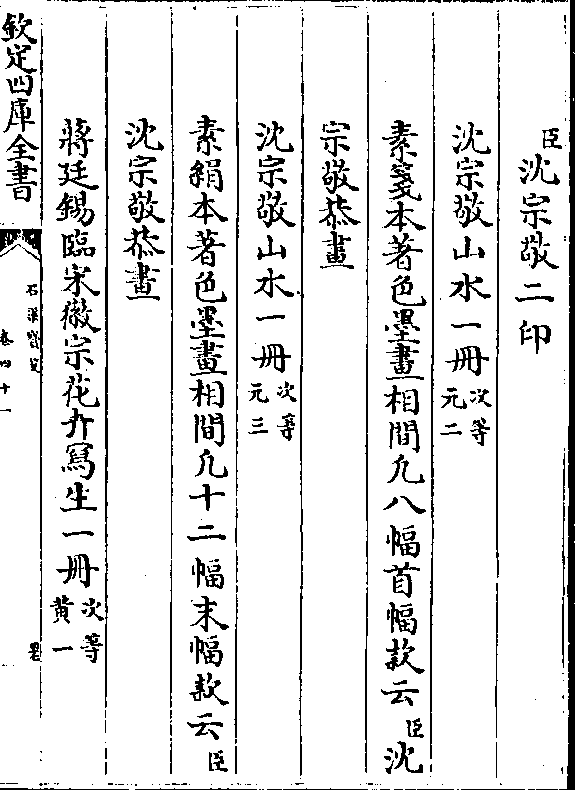 臣沈宗敬二印
沈宗敬山水一冊次等元二
素箋本著色墨畫相間凡八幅首幅款云臣沈
宗敬恭畫
沈宗敬山水一冊次等元三
素絹本著色墨畫相間凡十二幅末幅款云臣
沈宗敬恭畫
蔣廷錫臨宋徽宗花卉寫生一冊次等黃一
欽定四庫全書
石渠寶笈
卷四十一